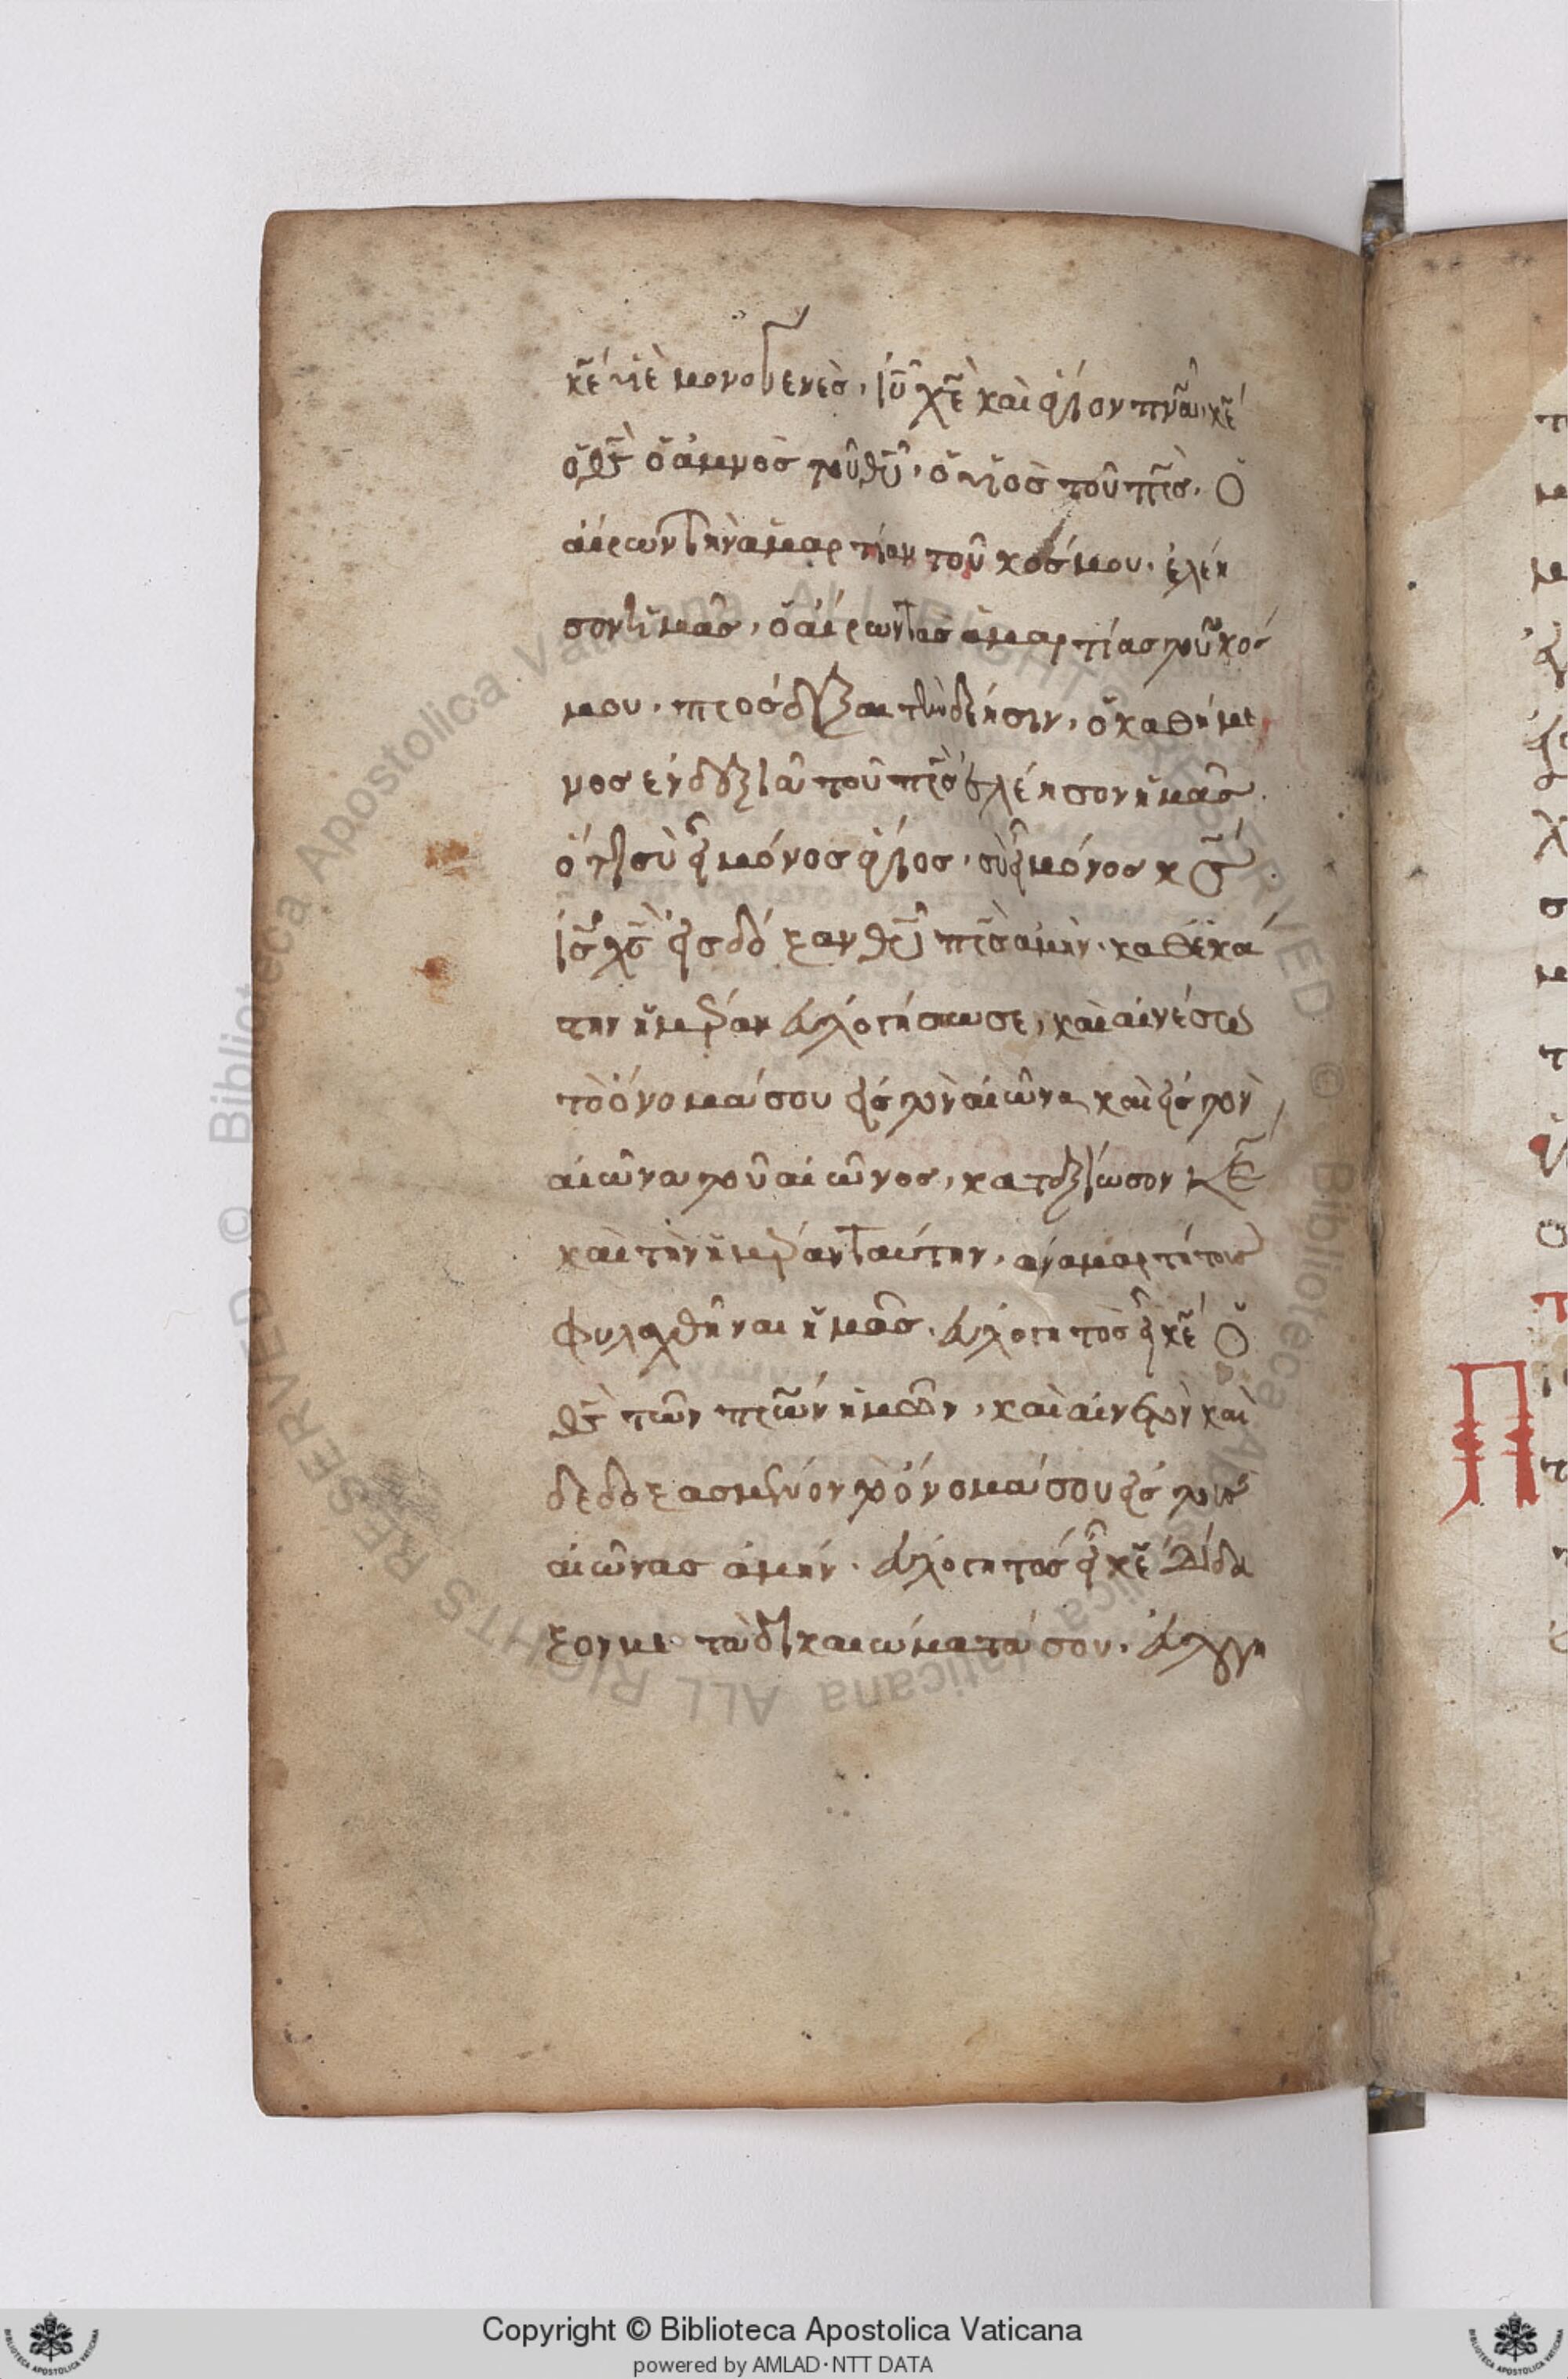 κε̅ υἱὲ μονογενὲσ, ιυ̅ χε̅ καὶ ἅγιον πνα̅· κε̅
ὁ θς̅ ὁ ἀμνὸσ τοῦ θυ̅, ὁ υἱὸσ τοῦ πρς̅. ὁ
αἴρων τὴν ἁμαρτίαν τοῦ κόσμου. ἐλέη
σον ἡμᾶσ, ὁ αἴρων τὰσ ἁμαρτίασ τοῦ κόσ
μου. πρόσδεξαι τὴν δέησιν, ὁ καθήμε
νοσ ἐν δεξιᾶ τοῦ πρς̅ ἐλέησον ἡμᾶσ.
ὅτι σὺ εἶ μόνοσ ἅγιοσ, σὺ εἶ μόνοσ κς̅
ις̅ χς̅ εἰσ δόξαν θυ̅ πρς̅ ἀμήν. καθεκά
την ἡμέραν εὐλογήσω σε, καὶ αἰνέσω
τὸ ὄνομά σου εἰσ τὸν αἰῶνα καὶ εἰσ τὸν
αἰῶνα τοῦ αἰῶνοσ, καταξίωσον κε̅
καὶ τὴν ἡμέραν ταύτην, ἀναμαρτήτουσ
φυλαχθῆναι ἡμᾶσ. εὐλογητὸσ εἶ κε̅ ὁ
θς̅ τῶν πρων̅ ἡμῶν, καὶ αἰνετὸν καὶ
δεδοξασμένον τὸ ὄνομά σου εἰσ τοὺσ
αἰῶνασ ἀμήν. εὐλογητὸσ εἶ κε̅ δίδα
ξον με τὰ δικαιώματά σου. εὐλογη
Copyright © Biblioteca Apostolica Vaticana
powered by AMLAD·NTT DATA
© Biblioteca Apostolica Vaticana ALL RIGHTS RESERVED © Biblioteca Apostolica Vaticana ALL RIGHTS RESERVED